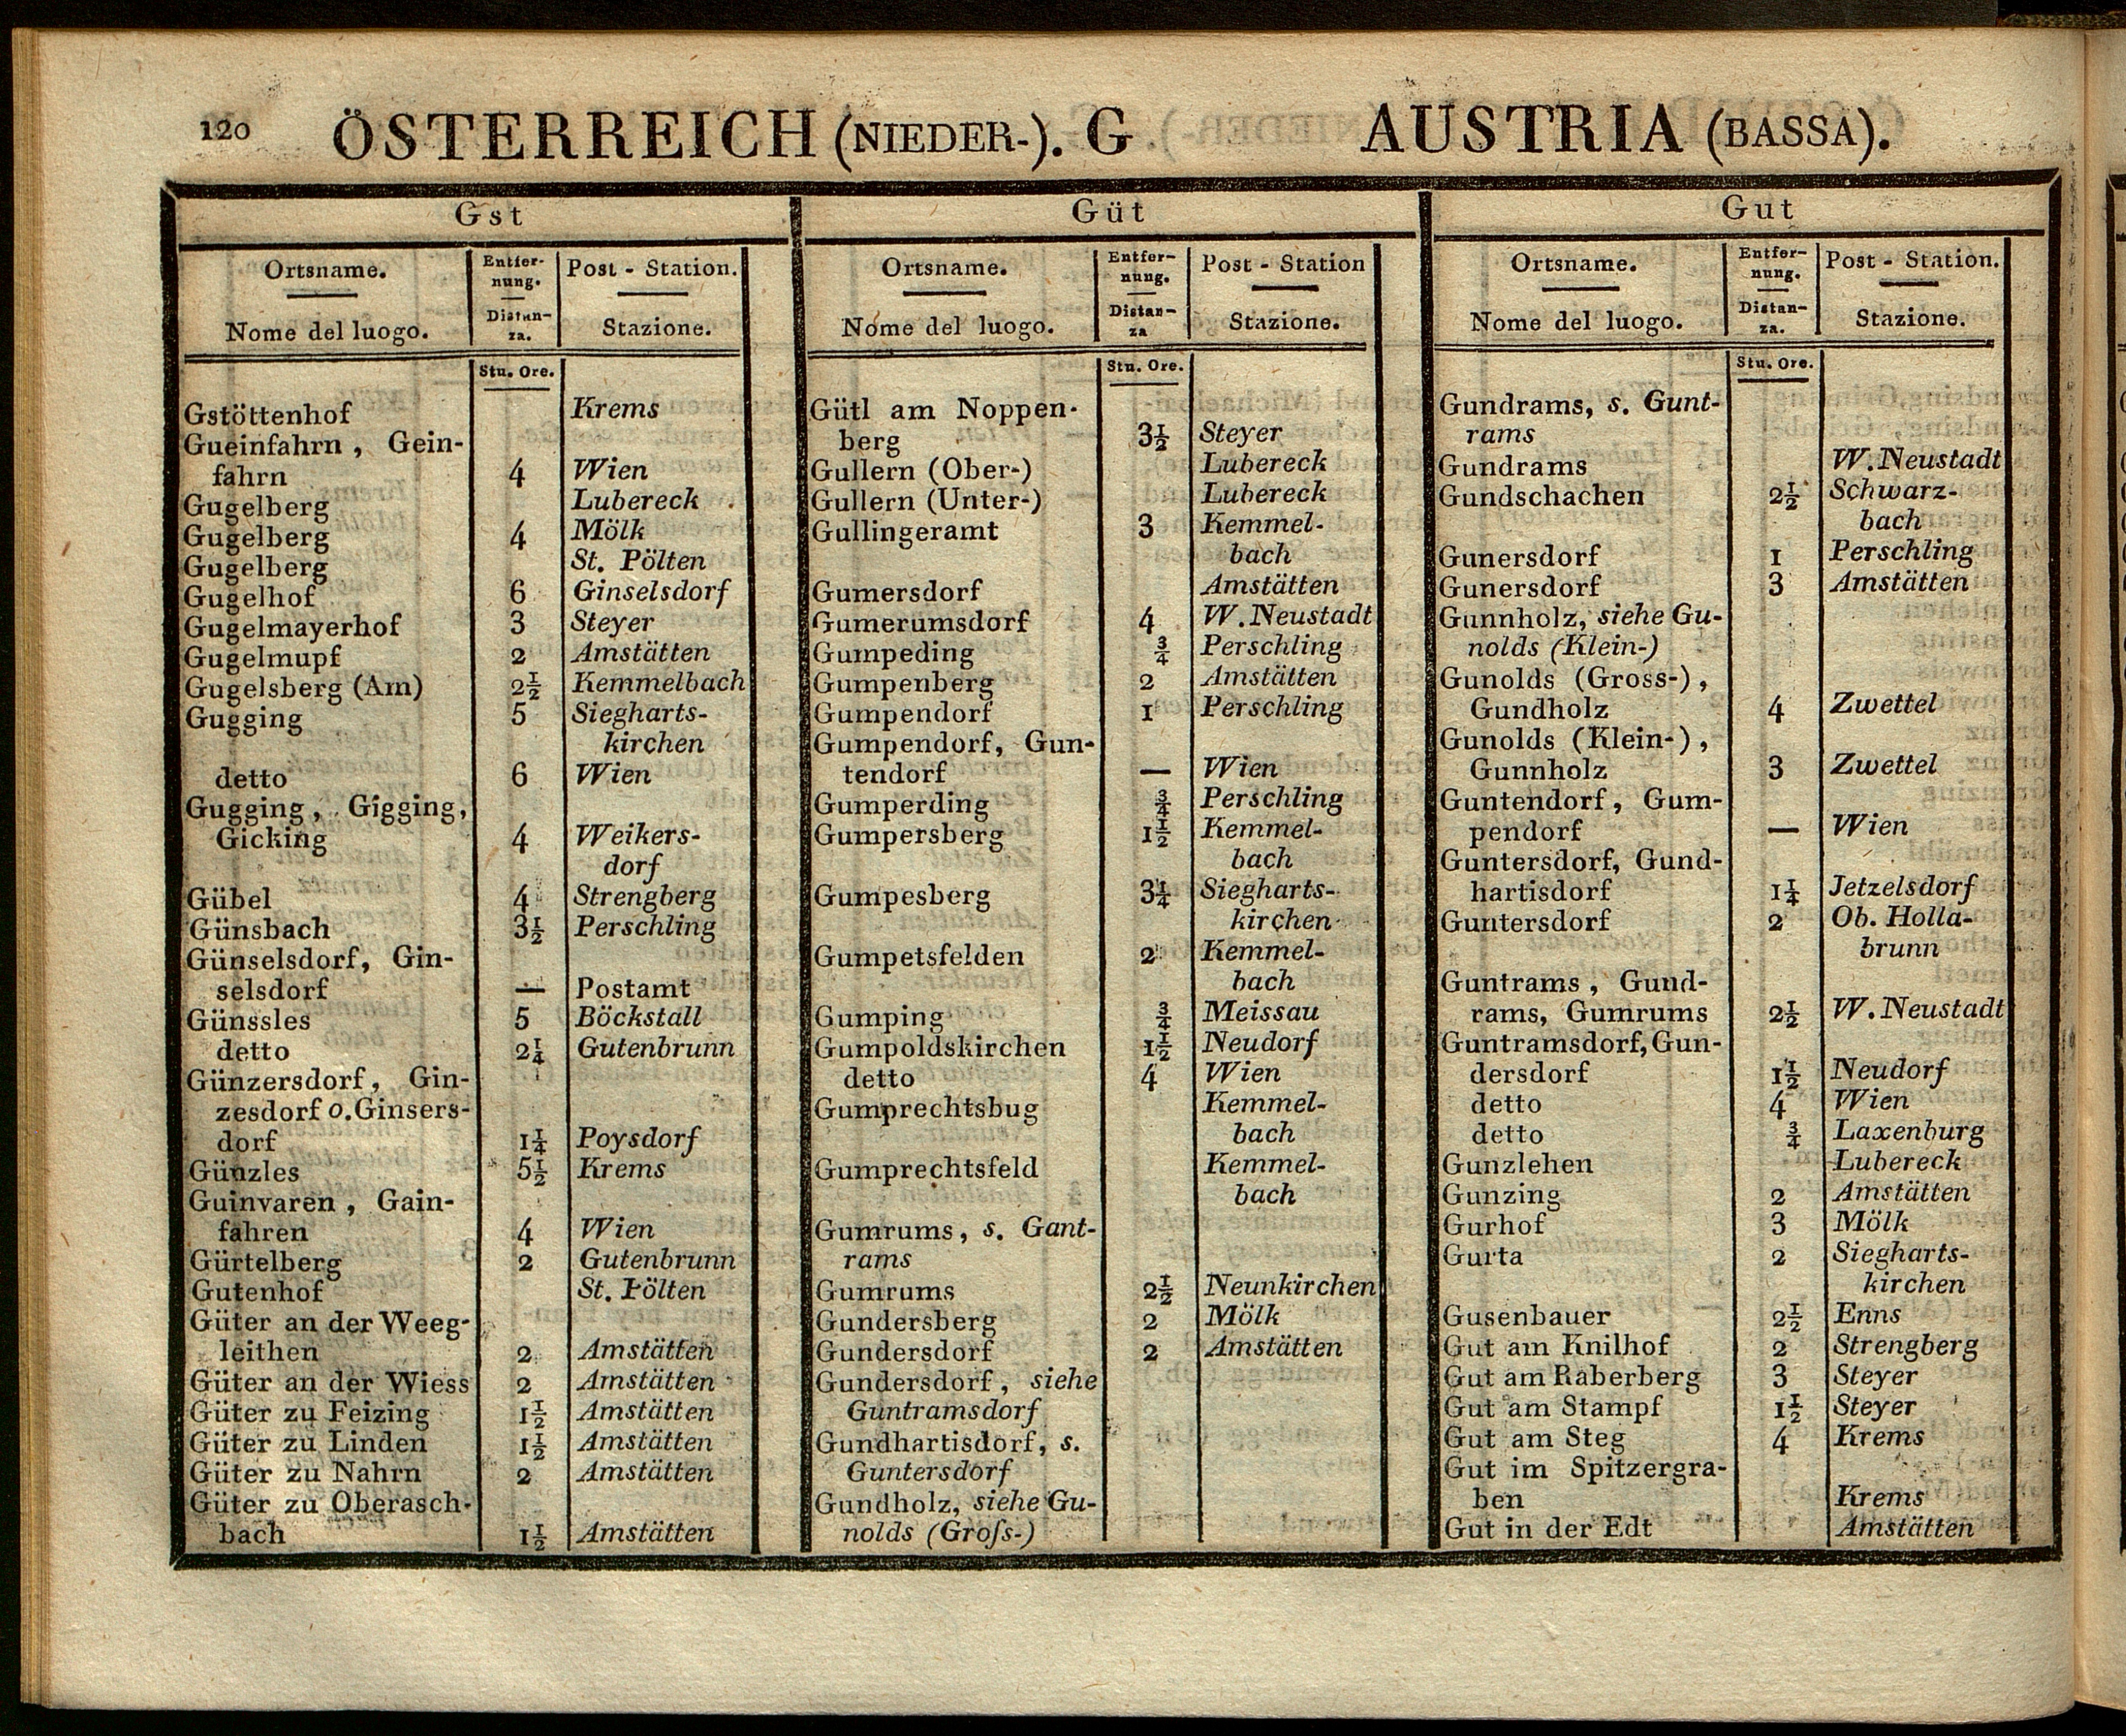 120 ÖSTERREICH (NIEDER-). G AUSTRIA (BASSA).
Gst
Ortsname. Entfer- Post - Station.
nung.
Nome del luogo. Distan- Stazione.
za.
Stu. Ore.
Gstöttenhof Krems
Gueinfahrn, Gein-
fahrn 4 Wien
Gugelberg Lubereck
Gugelberg 4 Mölk
Gugelberg St. Pölten
Gugelhof 6 Ginselsdorf
Gugelmayerhof 3 Steyer
Gugelmupf 2 Amstätten
Gugelsberg (Am) 2½ Kemmelbach
Gugging 5 Siegharts-
kirchen
detto 6 Wien
Gugging, Gigging,
Gicking 4 Weikers-
dorf
Gübel 4 Strengberg
Günsbach 3½ Perschling
Günselsdorf, Gin-
selsdorf — Postamt
Günssles 5 Böckstall
detto 2¼ Gutenbrunn
Günzersdorf, Gin-
zesdorf o. Ginsers-
dorf 1¼ Poysdorf
Günzles 5½ Krems
Guinvaren, Gain-
fahren 4 Wien
Gürtelberg 2 Gutenbrunn
Gutenhof St. Pölten
Güter an der Weeg-
leithen 2 Amstätten
Güter an der Wiess 2 Amstätten
Güter zu Feizing 1½ Amstätten
Güter zu Linden 1½ Amstätten
Güter zu Nahrn 2 Amstätten
Güter zu Oberasch-
bach 1½ Amstätten
Güt
Ortsname. Entfer- Post - Station
nung.
Nome del luogo. Distan- Stazione.
za
Stu. Ore.
Gütl am Noppen-
berg 3½ Steyer
Gullern (Ober-) Lubereck
Gullern (Unter-) Lubereck
Gullingeramt 3 Kemmel-
bach
Gumersdorf Amstätten
Gumerumsdorf 4 W. Neustadt
Gumpeding ¾ Perschling
Gumpenberg 2 Amstätten
Gumpendorf 1 Perschling
Gumpendorf, Gun-
tendorf — Wien
Gumperding ¾ Perschling
Gumpersberg 1½ Kemmel-
bach
Gumpesberg 3¼ Siegharts-
kirchen
Gumpetsfelden 2 Kemmel-
bach
Gumping ¾ Meissau
Gumpoldskirchen 1½ Neudorf
detto 4 Wien
Gumprechtsbug Kemmel-
bach
Gumprechtsfeld Kemmel-
bach
Gumrums, s. Gant-
rams
Gumrums 2½ Neunkirchen
Gundersberg 2 Mölk
Gundersdorf 2 Amstätten
Gundersdorf, siehe
Guntramsdorf
Gundhartisdorf, s.
Guntersdorf
Gundholz, siehe Gu-
nolds (Groſs-)
Gut
Ortsname. Entfer- Post - Station.
nung.
Nome del luogo. Distan- Stazione.
za.
Stu. Ore.
Gundrams, s. Gunt-
rams
Gundrams W. Neustadt
Gundschachen 2½ Schwarz-
bach
Gunersdorf 1 Perschling
Gunersdorf 3 Amstätten
Gunnholz, siehe Gu-
nolds (Klein-)
Gunolds (Gross-),
Gundholz 4 Zwettel
Gunolds (Klein-),
Gunnholz 3 Zwettel
Guntendorf, Gum-
pendorf — Wien
Guntersdorf, Gund-
hartisdorf 1¼ Jetzelsdorf
Guntersdorf 2 Ob. Holla-
brunn
Guntrams, Gund-
rams, Gumrums 2½ W. Neustadt
Guntramsdorf, Gun-
dersdorf 1½ Neudorf
detto 4 Wien
detto ¾ Laxenburg
Gunzlehen Lubereck
Gunzing 2 Amstätten
Gurhof 3 Mölk
Gurta 2 Siegharts-
kirchen
Gusenbauer 2½ Enns
Gut am Knilhof 2 Strengberg
Gut am Raberberg 3 Steyer
Gut am Stampf 1½ Steyer
Gut am Steg 4 Krems
Gut im Spitzergra-
ben Krems
Gut in der Edt Amstätten